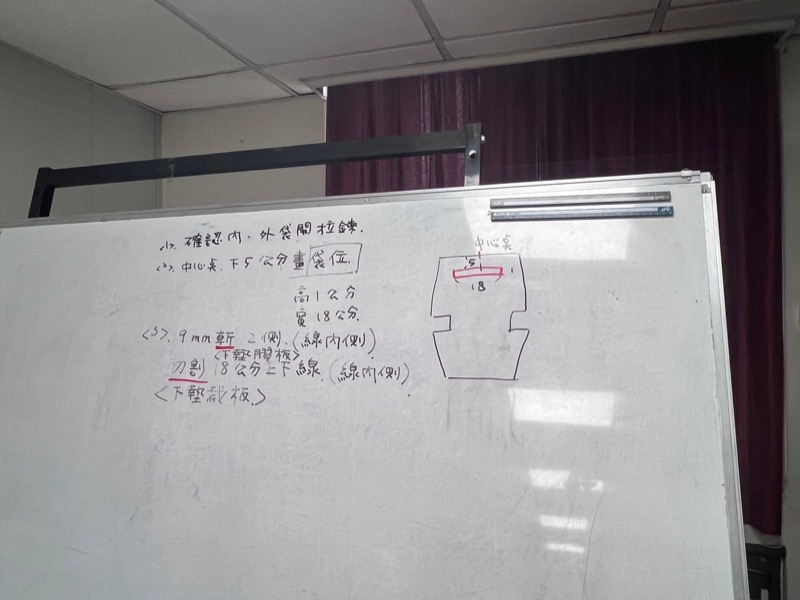 <1>. 確認內、外袋開拉鍊.
<2>. 中心点. 下5公分畫袋位.
高1公分
寬18公分.
<3>. 9mm斬 2側. (線內側)
<下墊膠板>
切割18公分上下線. (線內側)
<下墊裁板.>
中心点
5
1
18